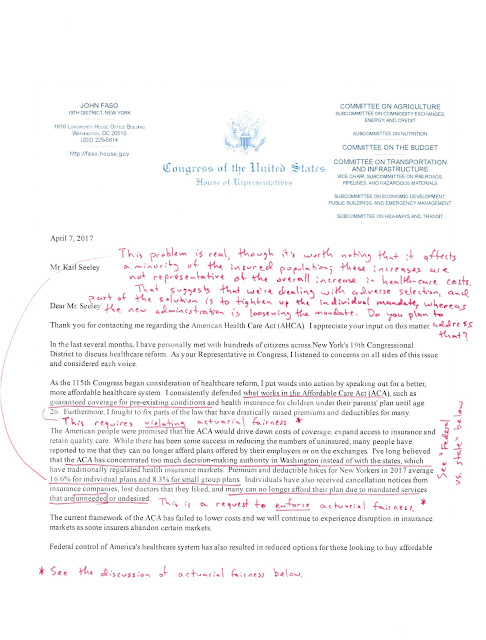 JOHN FASO
19TH DISTRICT, NEW YORK
1616 LONGWORTH HOUSE OFFICE BUILDING
WASHINGTON, DC 20515
(202) 225-5614
http://faso.house.gov
Congress of the United States
House of Representatives
COMMITTEE ON AGRICULTURE
SUBCOMMITTEE ON COMMODITY EXCHANGES,
ENERGY, AND CREDIT
SUBCOMMITTEE ON NUTRITION
COMMITTEE ON THE BUDGET
COMMITTEE ON TRANSPORTATION
AND INFRASTRUCTURE
VICE CHAIR, SUBCOMMITTEE ON RAILROADS,
PIPELINES, AND HAZARDOUS MATERIALS
SUBCOMMITTEE ON ECONOMIC DEVELOPMENT,
PUBLIC BUILDINGS, AND EMERGENCY MANAGEMENT
SUBCOMMITTEE ON HIGHWAYS AND TRANSIT
April 7, 2017
This problem is real, though it's worth noting that it affects
a minority of the insured population; these increases are
not representative of the overall increase in healthcare costs.
That suggests that we're dealing with adverse selection, and
part of the solution is to tighten up the individual mandate, whereas
the new administration is loosening the mandate. Do you plan to
address
that?
Mr. Karl Seeley
Dear Mr. Seeley
Thank you for contacting me regarding the American Health Care Act (AHCA). I appreciate your input on this matter.
In the last several months, I have personally met with hundreds of citizens across New York's 19th Congressional
District to discuss healthcare reform. As your Representative in Congress, I listened to concerns on all sides of this issue
and considered each voice.
As the 115th Congress began consideration of healthcare reform, I put words into action by speaking out for a better,
more affordable healthcare system. I consistently defended what works in the Affordable Care Act (ACA), such as
guaranteed coverage for pre-existing conditions and health insurance for children under their parents' plan until age
26. Furthermore, I fought to fix parts of the law that have drastically raised premiums and deductibles for many.
This requires violating actuarial fairness *
The American people were promised that the ACA would drive down costs of coverage, expand access to insurance and
retain quality care. While there has been some success in reducing the numbers of uninsured, many people have
reported to me that they can no longer afford plans offered by their employers or on the exchanges. I've long believed
that the ACA has concentrated too much decision-making authority in Washington instead of with the states, which
have traditionally regulated health insurance markets. Premium and deductible hikes for New Yorkers in 2017 average
16.6% for individual plans and 8.3% for small group plans. Individuals have also received cancellation notices from
insurance companies, lost doctors that they liked, and many can no longer afford their plan due to mandated services
that are unneeded or undesired.
This is a request to enforce actuarial fairness. *
See "Federal
vs. state" below
The current framework of the ACA has failed to lower costs and we will continue to experience disruption in insurance
markets as some insurers abandon certain markets.
Federal control of America's healthcare system has also resulted in reduced options for those looking to buy affordable
* See the discussion of actuarial fairness below.